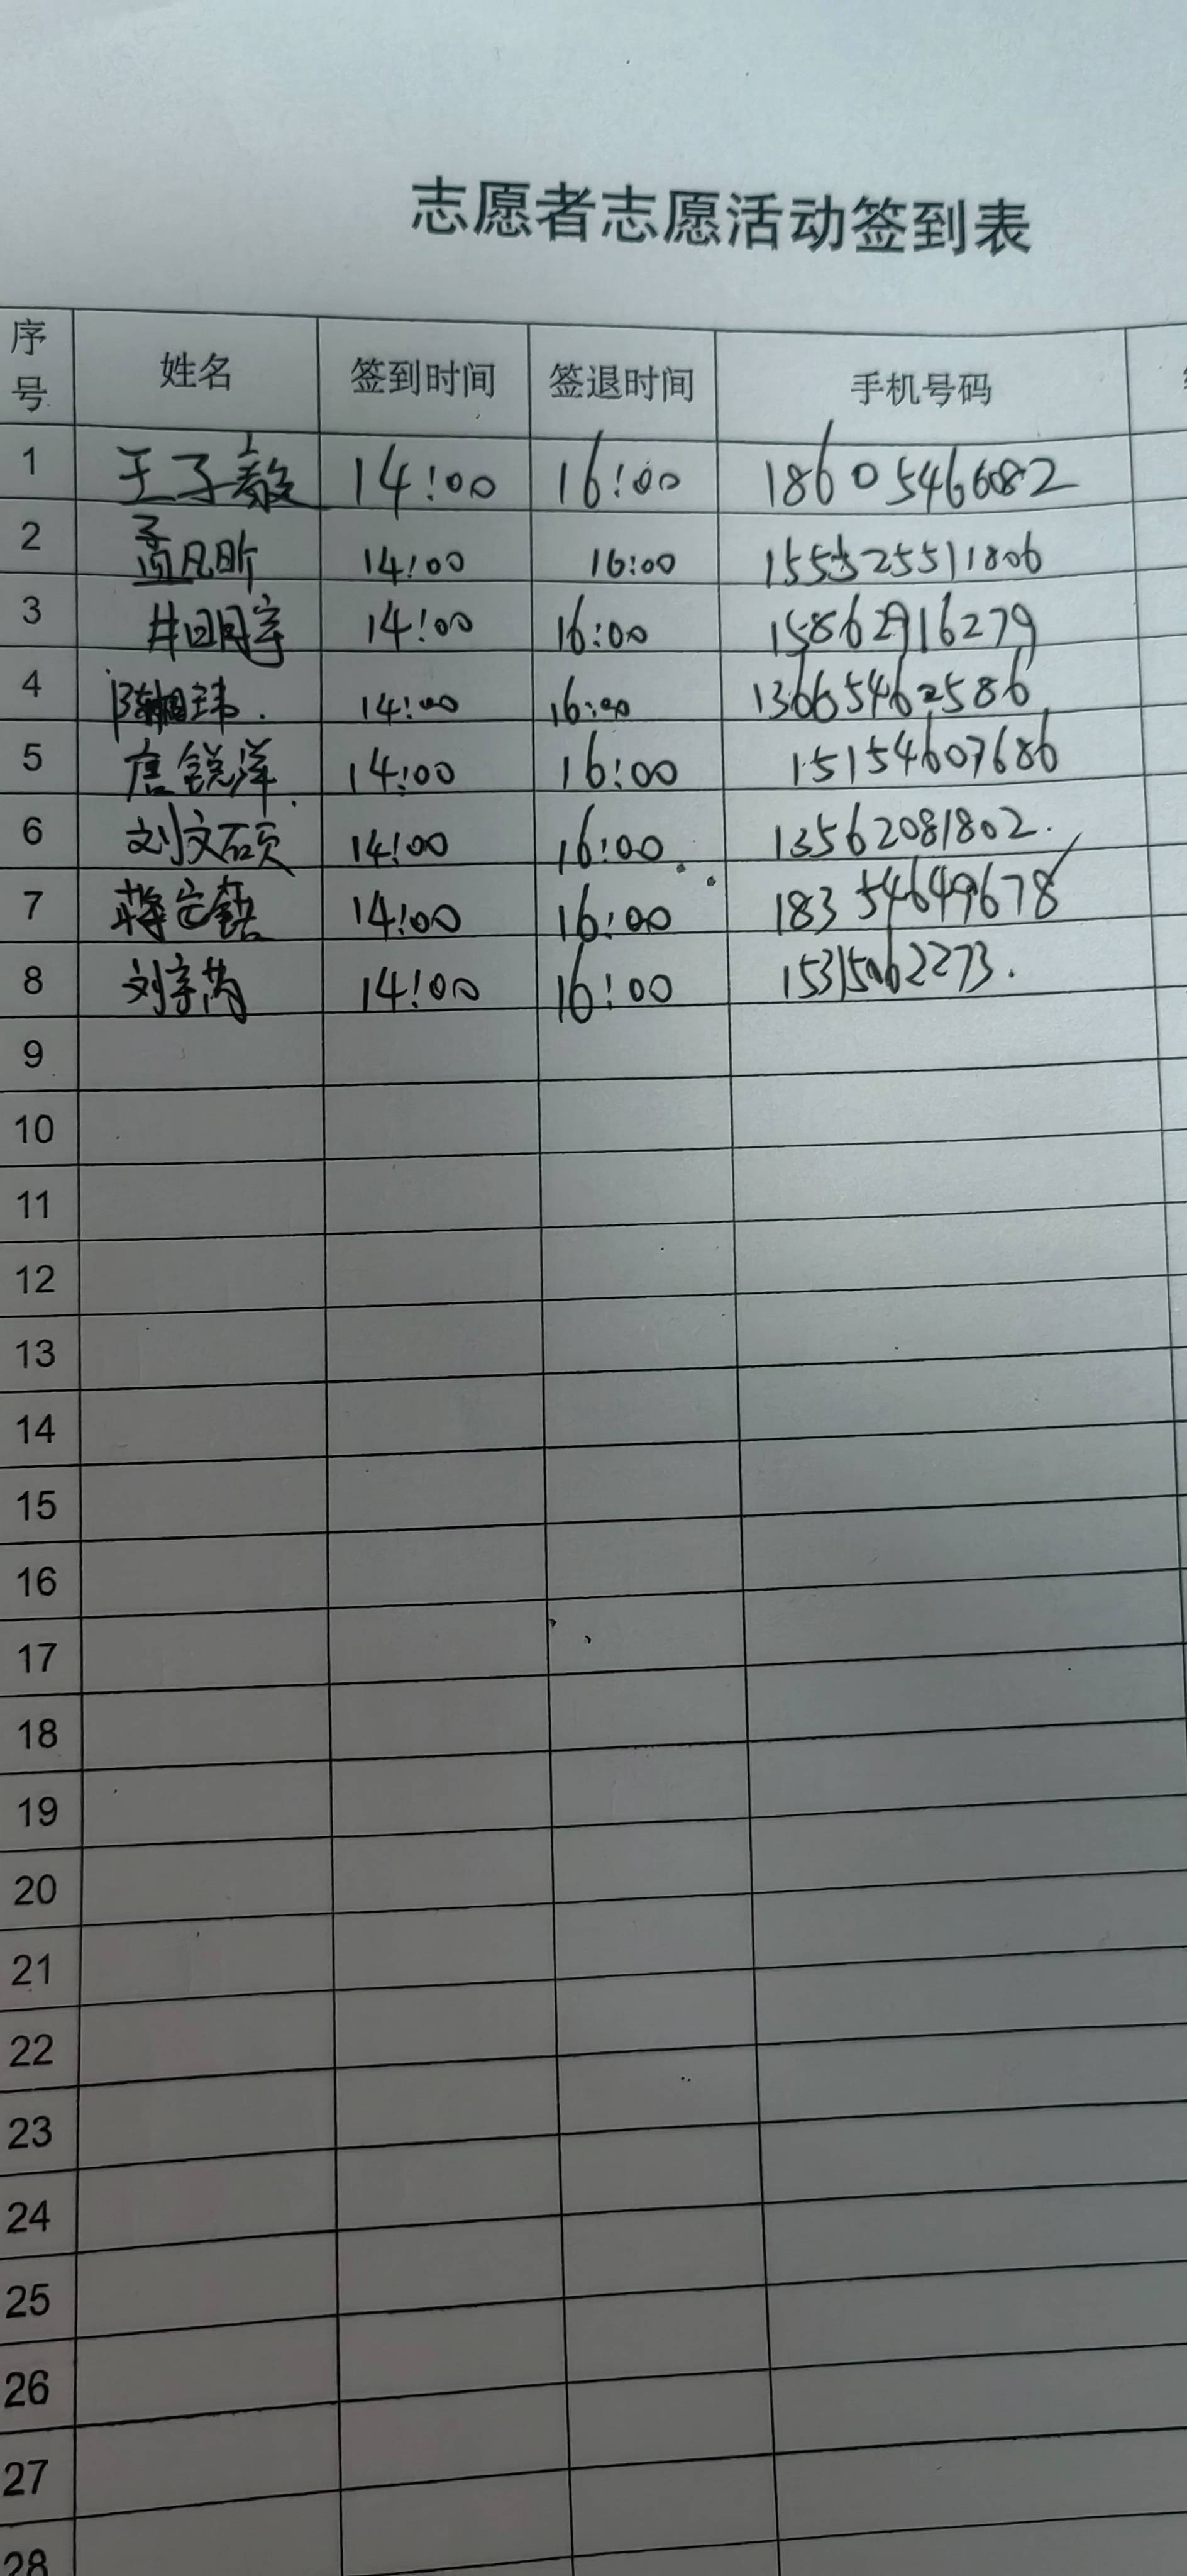 志愿者志愿活动签到表
序号 姓名 签到时间 签退时间 手机号码
1 王子毅 14:00 16:00 18605466682
2 孟凡昕 14:00 16:00
3 井明宇 14:00 16:00 15862916279
4 陈 玮 14:00 16:00 13665462586
5 唐锐洋 14:00 16:00 15154607686
6 刘文硕 14:00 16:00 13562081802
7 蒋 14:00 16:00 18354649678
8 刘 14:00 16:00 15315062273
9
10
11
12
13
14
15
16
17
18
19
20
21
22
23
24
25
26
27
28